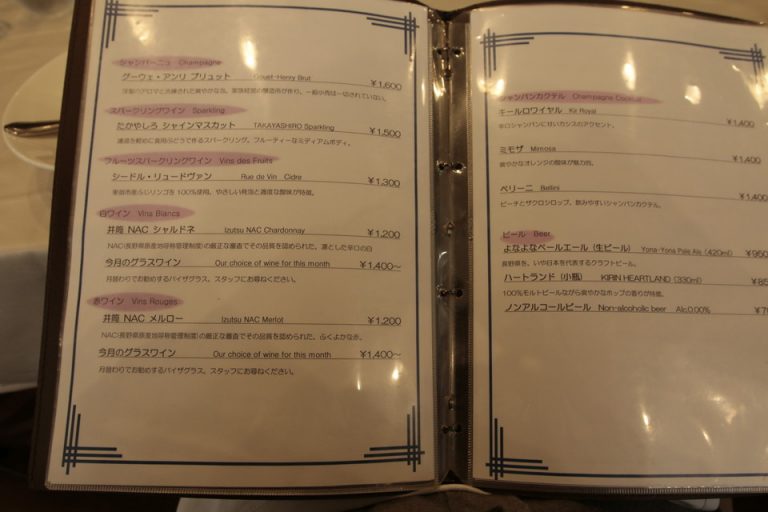 シャンパーニュ Champagne
グーウェ・アンリ ブリュット Gouet-Henry Brut ¥1,600
スパークリングワイン Sparkling
たかやしろ シャインマスカット TAKAYASHIRO Sparkling ¥1,500
濃道を軽めに食用ぶどうで作るスパークリング。フルーティーなミディアムボディ。
フルーツスパークリングワイン Vins des Fruits
シードル・リュードヴァン Rue de Vin Cidre ¥1,300
東御市産ふじリンゴを100%使用。やさしい発泡と適度な酸味が特徴。
白ワイン Vins Blancs
井筒 NAC シャルドネ Izutsu NAC Chardonnay ¥1,200
NAC(長野県原産地呼称管理制度)の厳正な審査でその品質を認められた、凛とした辛口の白
今月のグラスワイン Our choice of wine for this month ¥1,400～
月替わりでお勧めするバイザグラス。スタッフにお尋ねください。
赤ワイン Vins Rouges
井筒 NAC メルロー Izutsu NAC Merlot ¥1,200
NAC(長野県原産地呼称管理制度)の厳正な審査でその品質を認められた、ふくよかな赤。
今月のグラスワイン Our choice of wine for this month ¥1,400～
月替わりでお勧めするバイザグラス。スタッフにお尋ねください。
シャンパンカクテル Champagne Cocktail
キールロワイヤル Kir Royal ¥1,400
辛口シャンパンに甘いカシスのアクセント。
ミモザ Mimosa ¥1,400
爽やかなオレンジの酸味が魅力的。
ベリーニ Bellini ¥1,400
ピーチとザクロシロップ。飲みやすいシャンパンカクテル。
ビール Beer
よなよなペールエール (生ビール) Yona-Yona Pale Ale (420ml) ¥950
長野県を、いや日本を代表するクラフトビール。
ハートランド (小瓶) KIRIN HEARTLAND (330ml)
100%モルトビールながら爽やかなホップの香りが特徴。
ノンアルコールビール Non-alcoholic beer Alc.0.00%